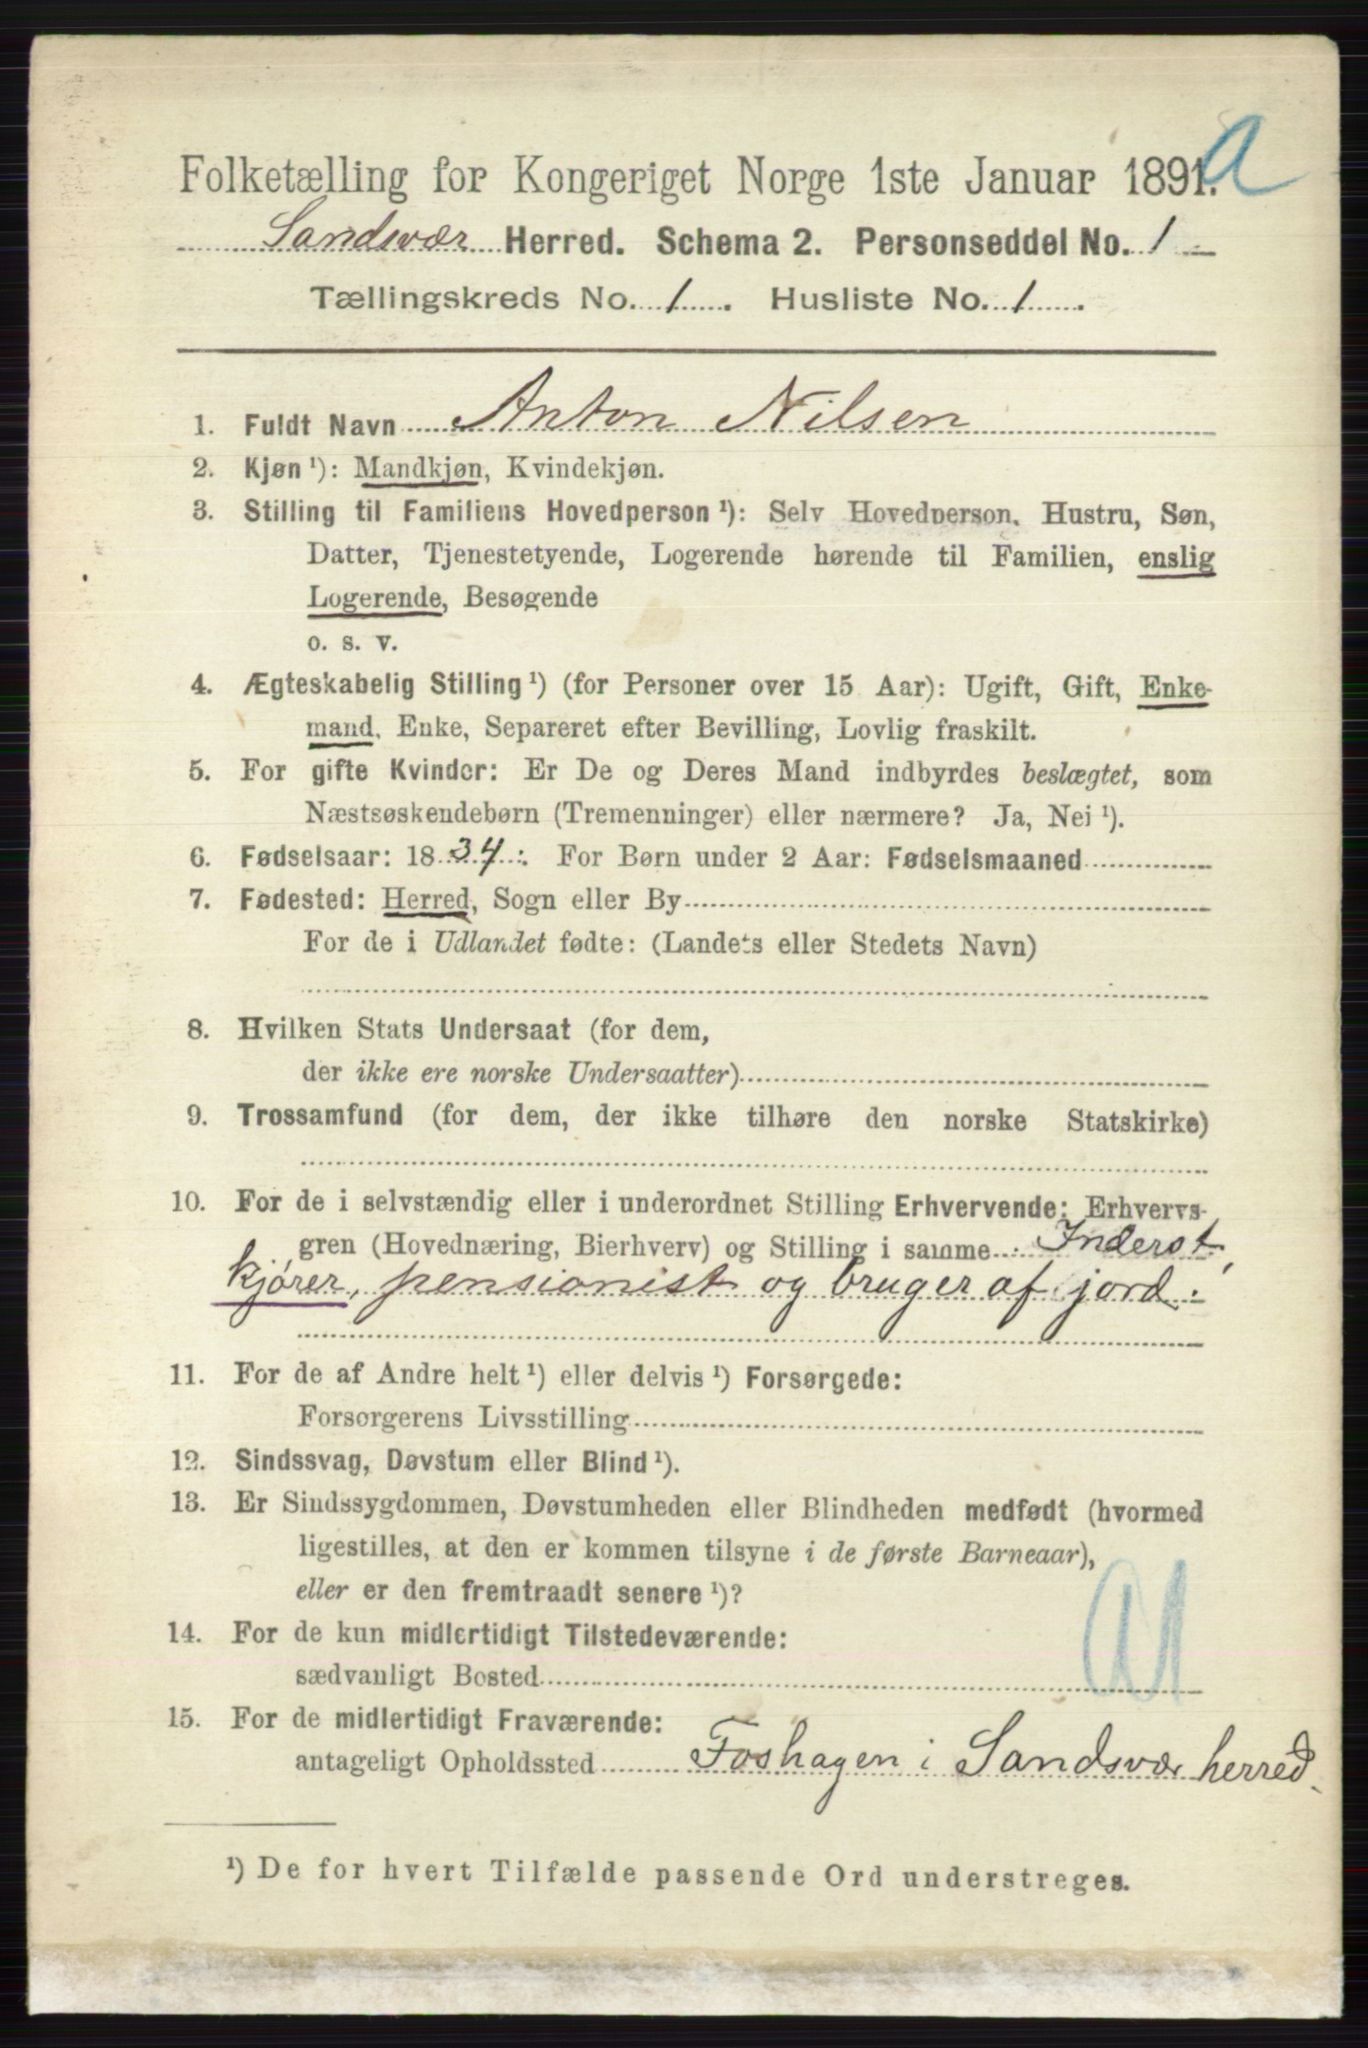 Folketælling for Kongeriget Norge 1ste Januar 1891.
a
Sandsvær Herred. Schema 2. Personseddel No. 1
Tællingskreds No. 1. Husliste No. 1.
1. Fuldt Navn Anton Nilsen
2. Kjøn ¹): Mandkjøn, Kvindekjøn.
3. Stilling til Familiens Hovedperson ¹): Selv Hovedperson, Hustru, Søn,
Datter, Tjenestetyende, Logerende hørende til Familien, enslig
Logerende, Besøgende
o. s. v.
4. Ægteskabelig Stilling ¹) (for Personer over 15 Aar): Ugift, Gift, Enke-
mand, Enke, Separeret efter Bevilling, Lovlig fraskilt.
5. For gifte Kvinder: Er De og Deres Mand indbyrdes beslægtet, som
Næstsøskendebørn (Tremenninger) eller nærmere? Ja, Nei ¹).
6. Fødselsaar: 1834. For Børn under 2 Aar: Fødselsmaaned
7. Fødested: Herred, Sogn eller By
For de i Udlandet fødte: (Landets eller Stedets Navn)
8. Hvilken Stats Undersaat (for dem,
der ikke ere norske Undersaatter)
9. Trossamfund (for dem, der ikke tilhøre den norske Statskirke)
10. For de i selvstændig eller i underordnet Stilling Erhvervende: Erhvervs-
gren (Hovednæring, Bierhverv) og Stilling i samme Inderst,
kjører, pensionist og bruger af jord.
11. For de af Andre helt ¹) eller delvis ¹) Forsørgede:
Forsørgerens Livsstilling
12. Sindssvag, Døvstum eller Blind ¹).
13. Er Sindssygdommen, Døvstumheden eller Blindheden medfødt (hvormed
ligestilles, at den er kommen tilsyne i de første Barneaar),
eller er den fremtraadt senere ¹)?
14. For de kun midlertidigt Tilstedeværende:
sædvanligt Bosted
15. For de midlertidigt Fraværende:
antageligt Opholdssted Foshagen i Sandsvær herred.
¹) De for hvert Tilfælde passende Ord understreges.